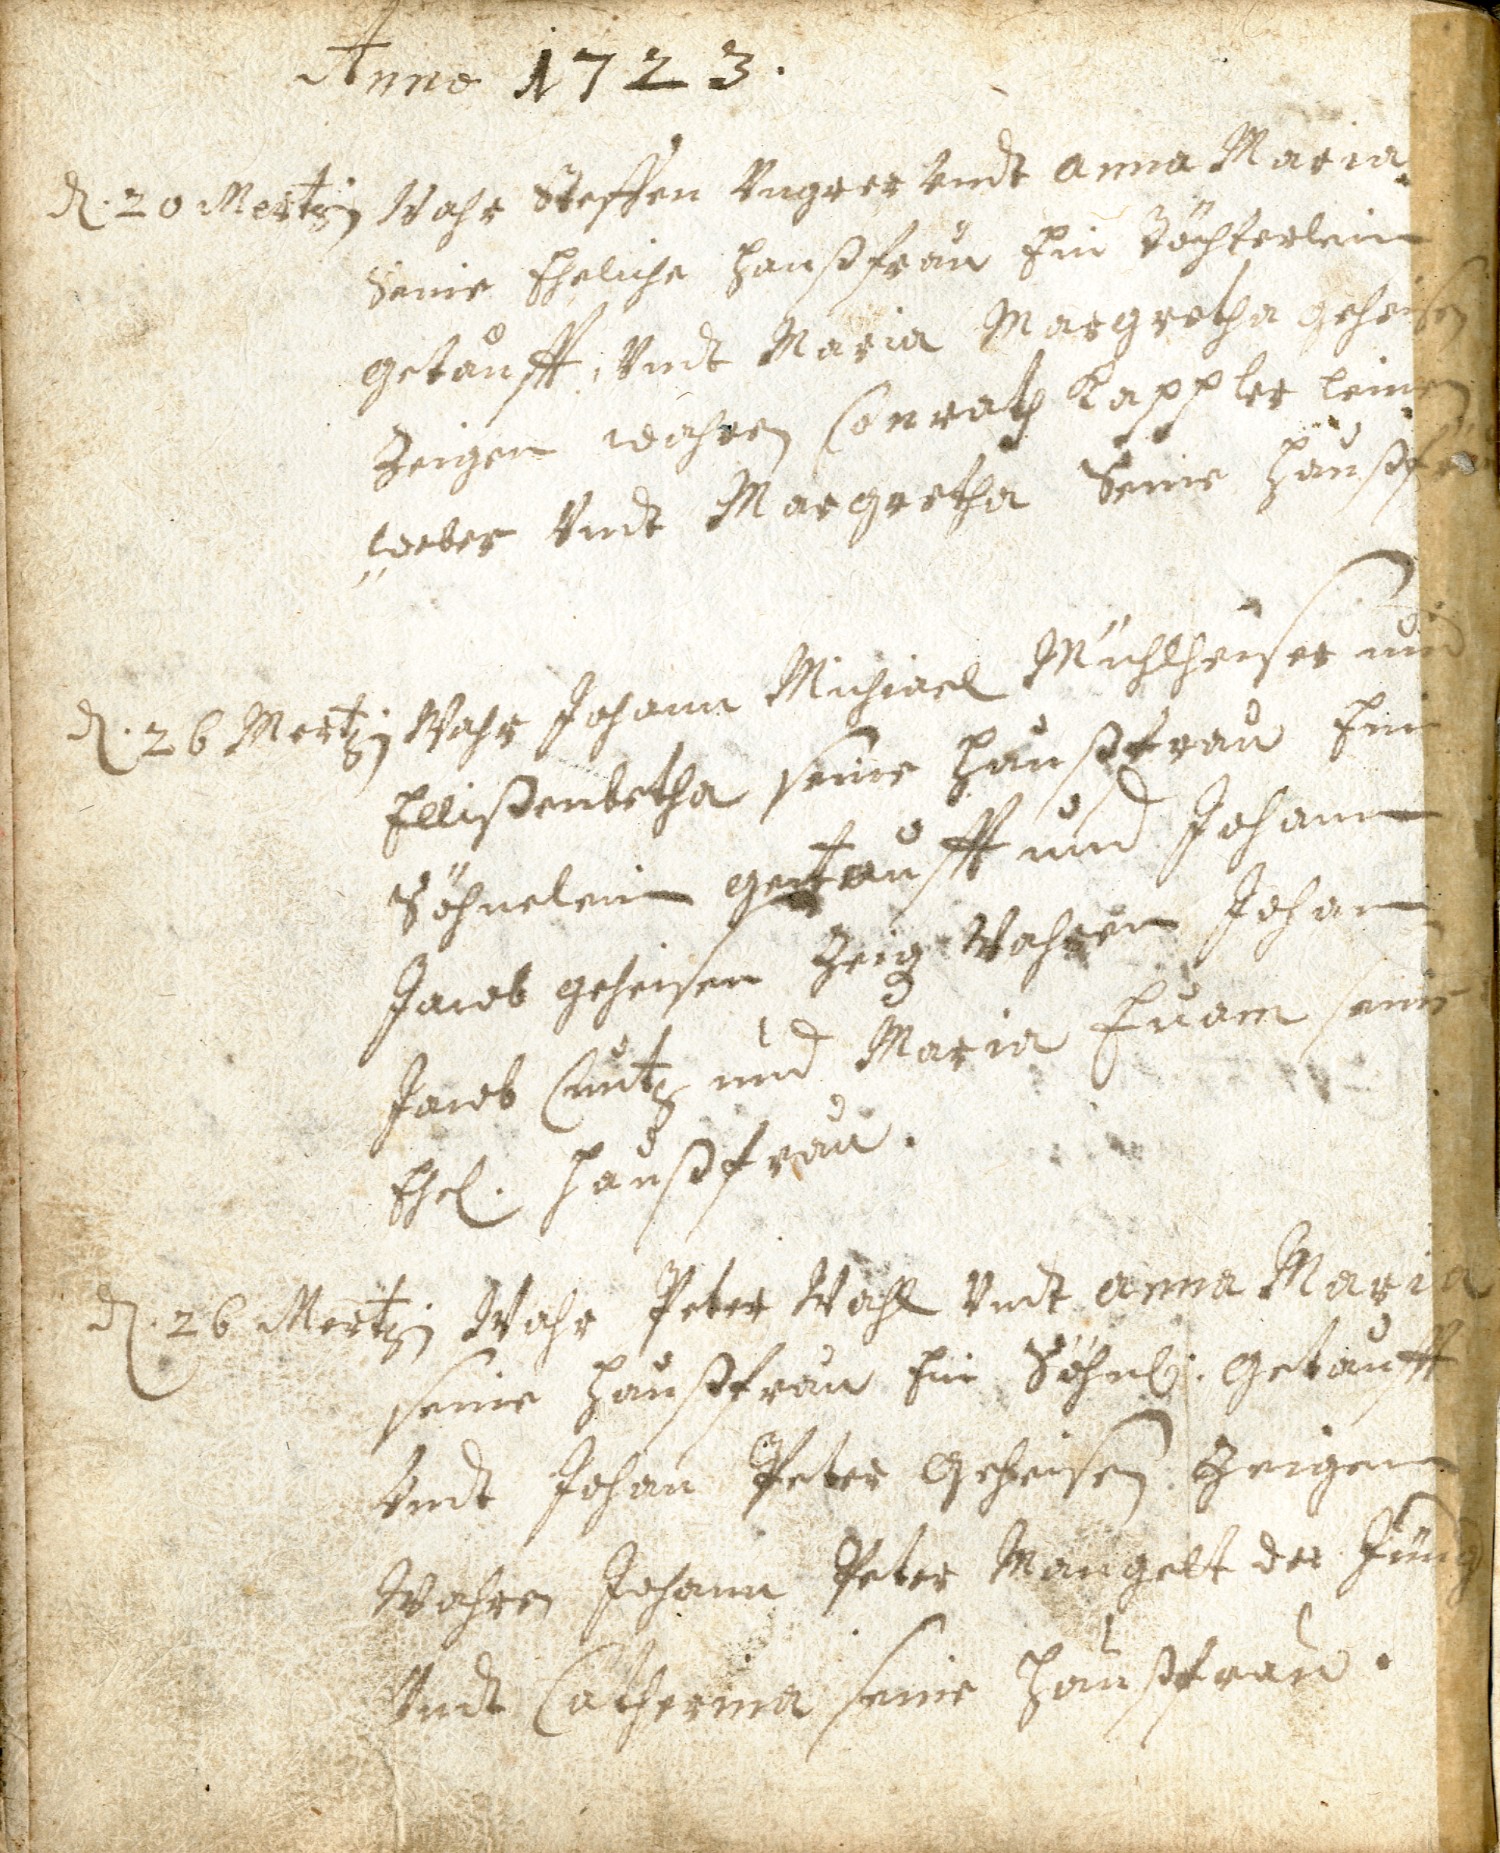 Anno 1723.
d. 20 Mertz Wahr Steffen Ungrer Undt anna Maria
Seine Eheliche Haußfrau Ein Töchterlein
getaufft, Undt Maria Margretha geheisen
Zeigen wahren Conrath Kappler leinen
weber Undt Margretha Seine Haußfrau
d. 26 Mertz Wahr Johann Michael Mühlheiser und
Ellißenbetha seine Haußfrau Ein
Söhnelein getaufft und Johann
Jacob geheisen Zeig Wahren Johann
Jacob Cuntz und Maria Evam seine
Ehel. Haußfrau.
d. 26 Mertz Wahr Peter Wahl Undt anna Maria
seine Haußfrau Ein Söhnl. getaufft
Undt Johan Peter geheisen Zeigen
Wahren Johann Peter Mangelt der Jüng
Undt Catherina seine Haußfrau.